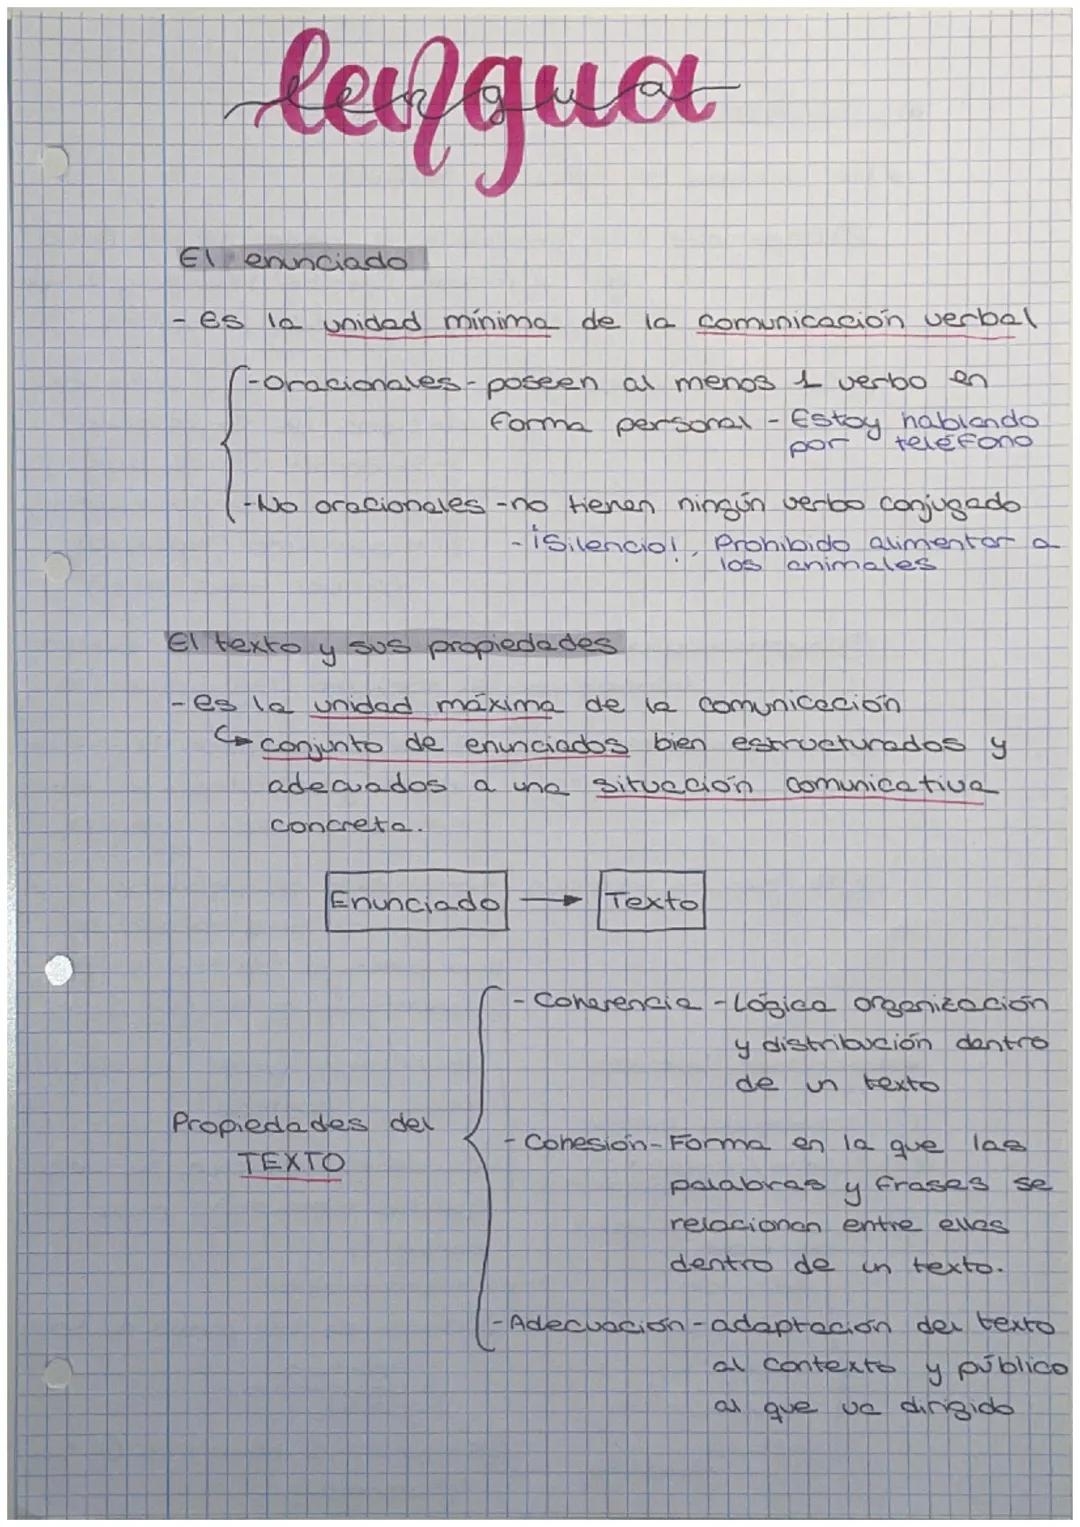 lengua
lengua
El enunciado
- es la unidad mínima de la comunicación verbal
- Oracionales - poseen al menos 1 verbo en
forma personal - Estoy hablando
por teléfono
- No oracionales - no tienen ningún verbo conjugado
- ¡Silencio!, Prohibido alimentar a
los animales
El texto y sus propiedades
- es la unidad máxima de la comunicación
↳ conjunto de enunciados bien estructurados y
adecuados a una situación comunicativa
concreta.
Enunciado → Texto
- Coherencia - Lógica organización
y distribución dentro
de un texto
Propiedades del
TEXTO
- Cohesión - Forma en la que las
palabras y frases se
relacionan entre ellas
dentro de un texto.
- Adecuación - adaptación del texto
al contexto y público
al que va dirigido